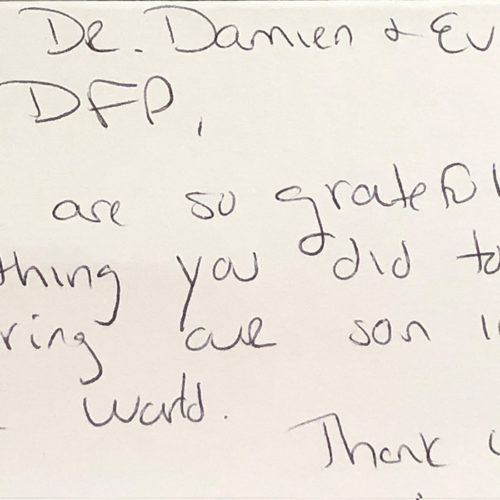 Dr. Damien & Ev
DFP,
are so grateful
thing you did to
ring our son i
world.
Thank